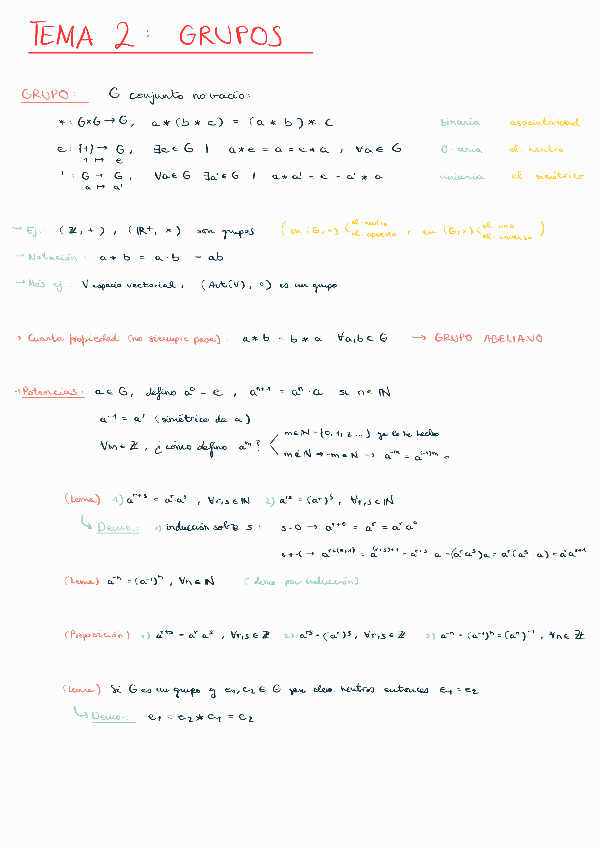 TEMA 2: GRUPOS
GRUPO: G conjunto no vacío:
*: G×G → G, a*(b*c) = (a*b)*c binaria asociatividad
e: {1} → G, ∃e∈G | a*e = a = e*a, ∀a∈G 0-aria el. neutro
1 ↦ e
': G → G, ∀a∈G ∃a'∈G | a*a' = e = a'*a unaria el. simétrico
a ↦ a'
→ Ej.: (ℤ,+), (ℝ⁺,×) son grupos (en (G,+) < el. neutro el. opuesto, en (G,×) < el. uno el. inverso)
→ Notación: a*b = a·b = ab
→ Más ej: V espacio vectorial, (Aut(V),∘) es un grupo
→ Cuarta propiedad (no siempre pasa): a*b = b*a ∀a,b∈G → GRUPO ABELIANO
→ Potencias: a∈G, defino a⁰ = e, aⁿ⁺¹ = aⁿ·a si n∈ℕ
a⁻¹ = a' (simétrico de a)
∀m∈ℤ, ¿cómo defino aᵐ? < m∈ℕ = {0,1,2...} ya lo he hecho
m∉ℕ → -m∈ℕ →
(Lema) 1) aʳ⁺ˢ = aʳ·aˢ, ∀r,s∈ℕ 2) aʳˢ = (aʳ)ˢ, ∀r,s∈ℕ
↳ Demo.: 1) inducción sobre s: s=0 → aʳ⁺⁰ = aʳ = aʳa⁰
s+1 → aʳ⁺⁽ˢ⁺¹⁾ = a⁽ʳ⁺ˢ⁾⁺¹ = aʳ⁺ˢ·a = (aʳaˢ)a = aʳ(aˢ·a) = aʳaˢ⁺¹
(Lema) a⁻ⁿ = (a⁻¹)ⁿ, ∀n∈ℕ (demo. por inducción)
(Proposición) 1) aʳ⁺ˢ = aʳaˢ, ∀r,s∈ℤ 2) aʳˢ = (aʳ)ˢ, ∀r,s∈ℤ 3) a⁻ⁿ = (a⁻¹)ⁿ = (aⁿ)⁻¹, ∀n∈ℤ
(Lema) Si G es un grupo y e₁,e₂∈G son elem. neutros entonces e₁=e₂
↳ Demo.: e₁ = e₂*e₁ = e₂